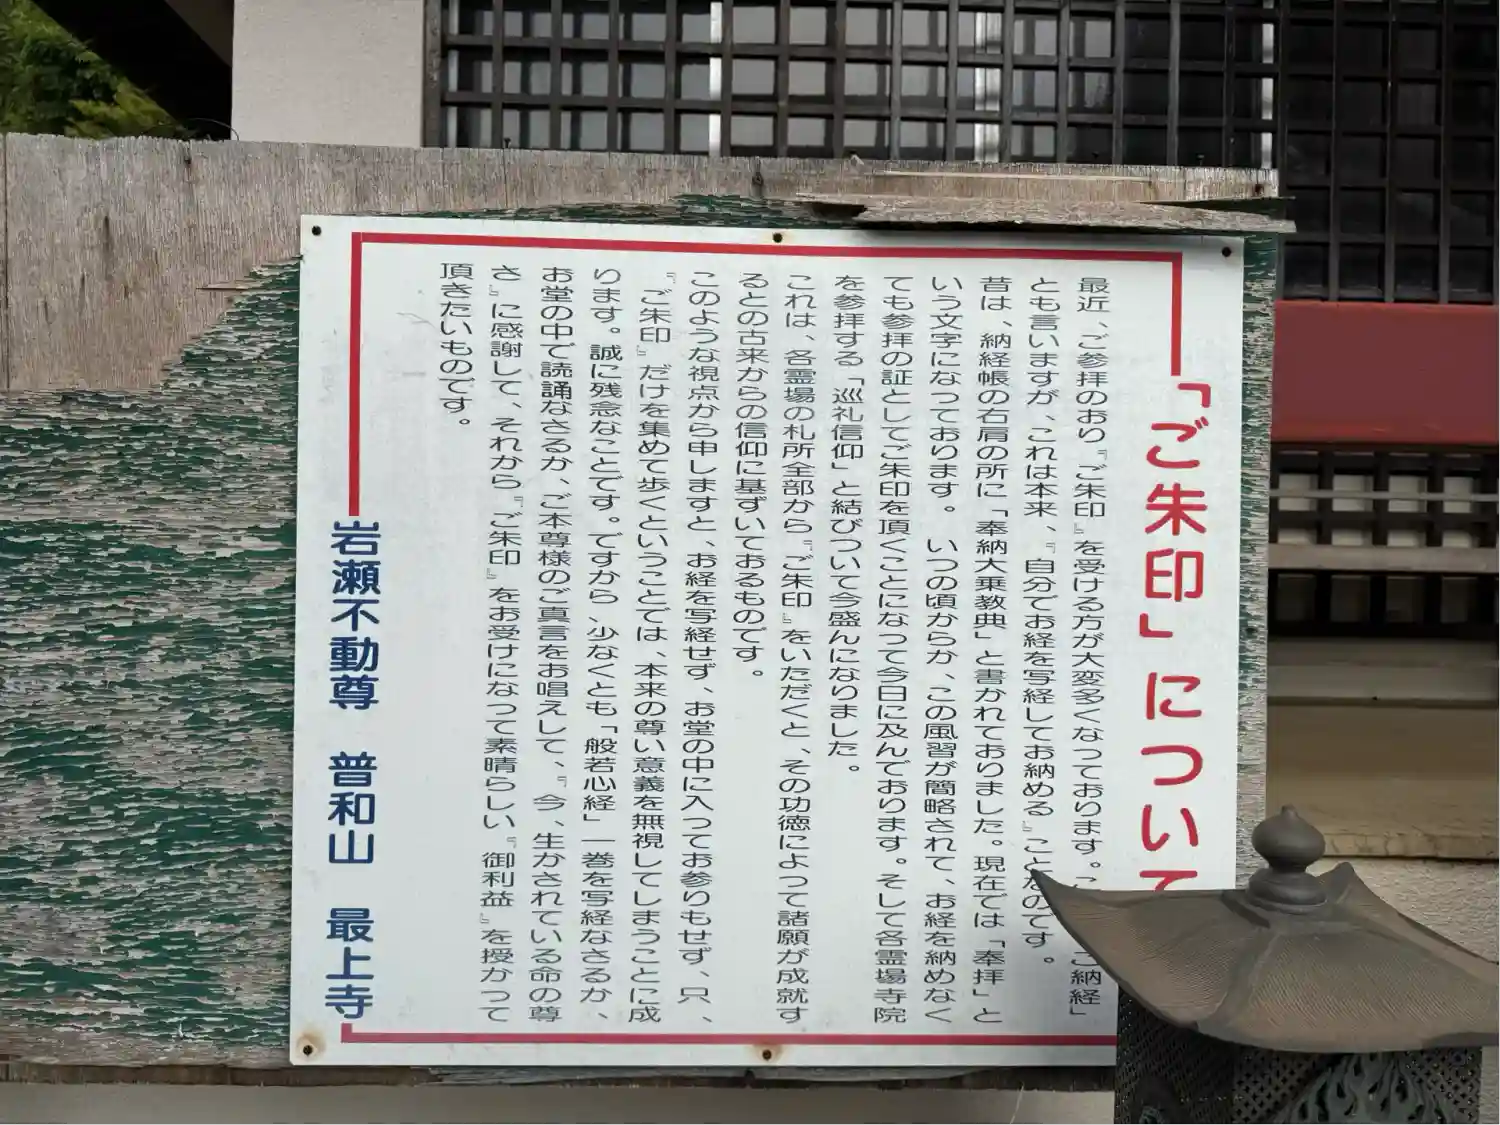 「ご朱印」について
最近、ご参拝のおり『ご朱印』を受ける方が大変多くなっております。こ ご納経」
とも言いますが、これは本来、『自分でお経を写経してお納める』ことなのです。
昔は、納経帳の右肩の所に「奉納大乗教典」と書かれておりました。現在では「奉拝」と
いう文字になっております。いつの頃からか、この風習が簡略されて、お経を納めなく
ても参拝の証としてご朱印を頂くことになって今日に及んでおります。そして各霊場寺院
を参拝する「巡礼信仰」と結びついて今盛んになりました。
これは、各霊場の札所全部から『ご朱印』をいただくと、その功徳によって諸願が成就す
るとの古来からの信仰に基ずいておるものです。
このような視点から申しますと、お経を写経せず、お堂の中に入ってお参りもせず、只、
『ご朱印』だけを集めて歩くということでは、本来の尊い意義を無視してしまうことに成
ります。誠に残念なことです。ですから、少なくとも「般若心経」一巻を写経なさるか、
お堂の中で読誦なさるか、ご本尊様のご真言をお唱えして、『今、生かされている命の尊
さ』に感謝して、それから『ご朱印』をお受けになって素晴らしい『御利益』を授かって
頂きたいものです。
岩瀬不動尊　普和山　最上寺